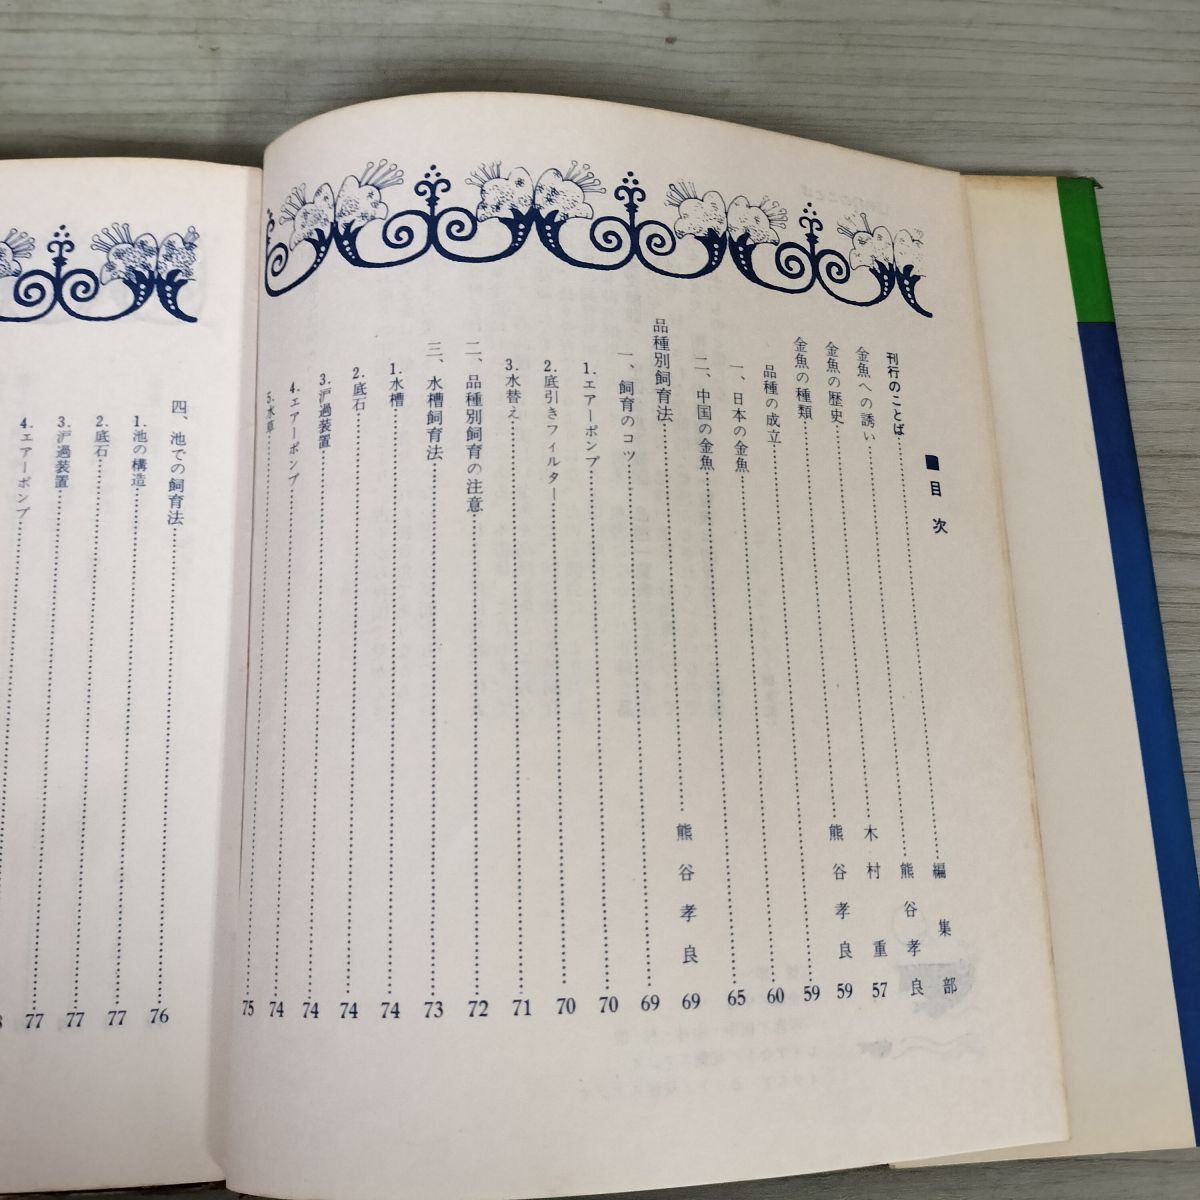 ■目次
刊行のことば……編集部
金魚への誘い……熊谷孝良
金魚の歴史……木村重 57
金魚の種類……熊谷孝良 59
品種の成立……59
一、日本の金魚……60
二、中国の金魚……65
品種別飼育法……熊谷孝良 69
一、飼育のコツ……69
1.エアーポンプ……70
2.底引きフィルター……70
3.水替え……71
二、品種別飼育の注意……72
三、水槽飼育法……73
1.水槽……74
2.底石……74
3.沪過装置……74
4.エアーポンプ……74
5.水草……75
四、池での飼育法……76
1.池の構造……77
2.底石……77
3.沪過装置……77
4.エアーポンプ……